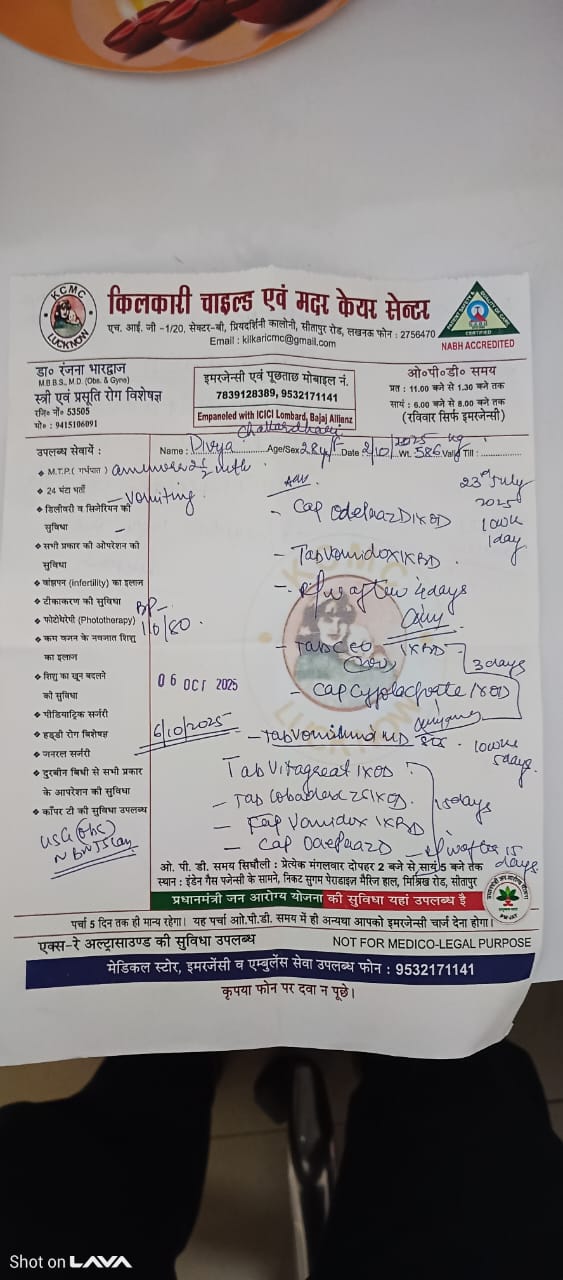 KCMC
LUCKNOW
किलकारी चाइल्ड एवं मदर केयर सेन्टर
एच. आई. जी -1/20, सेक्टर-बी, प्रियदर्शिनी कालोनी, सीतापुर रोड, लखनऊ फोन : 2756470
Email : kilkaricmc@gmail.com
NABH ACCREDITED
डा० रंजना भारद्वाज
M.B.B.S., M.D. (Obs. & Gyne)
स्त्री एवं प्रसूति रोग विशेषज्ञ
रजि० नं० 53505
मो० : 9415106091
इमरजेन्सी एवं पूछताछ मोबाइल नं.
7839128389, 9532171141
Empaneled with ICICI Lombard, Bajaj Allianz
ओ०पी०डी० समय
प्रत : 11.00 बजे से 1.30 बजे तक
सायं : 6.00 बजे से 8.00 बजे तक
(रविवार सिर्फ इमरजेन्सी)
उपलब्ध सेवायें :
Name : Divya Age/Sex 28y/F Date 2/10/2025 Wt. 58.6 kg Valid Till :
M.T.P.( गर्भपात )
24 घंटा भर्ती
डिलीवरी व सिजेरियन की
सुविधा
सभी प्रकार की ओपरेशन की
सुविधा
बांझपन (infertility) का इलाज
टीकाकरण की सुविधा
फोटोथेरेपी (Phototherapy)
कम वजन के नवजात शिशु
का इलाज
शिशु का खून बदलने
की सुविधा
पीडियाट्रिक सर्जरी
हड्डी रोग विशेषज्ञ
जनरल सर्जरी
दुरबीन बिधी से सभी प्रकार
के आपरेशन की सुविधा
कॉपर टी की सुविधा उपलब्ध
- Vomiting
BP-
110/80.
06 OCT 2025
6/10/2025
USG (Obs)
23rd July
2025
10wk
1day
- Cap Odepraz D 1XOD
- Tab Vomidox 1XBD.
- R/w after 4days
- Tab 1XBD
3days
- Cap 1XOD
- Tab Vomikind MD SOS.
10wk
5days.
Tab Vitagreat 1XOD
- Tab 1XOD.
- Tab Vomidox 1XBD
- Cap Odepraz D
15days
- R/w after 15
days
ओ. पी. डी. समय सिधौली : प्रत्येक मंगलवार दोपहर 2 बजे से सायं 5 बजे तक
स्थान : इंडेन गैस एजेन्सी के सामने, निकट सुगम पेराडाइज मैरिज हाल, मिश्रिख रोड, सीतापुर
प्रधानमंत्री जन आरोग्य योजना की सुविधा यहां उपलब्ध है
PM-JAY
पर्चा 5 दिन तक ही मान्य रहेगा। यह पर्चा ओ.पी.डी. समय में ही अन्यथा आपको इमरजेन्सी चार्ज देना होगा।
एक्स-रे अल्ट्रासाउण्ड की सुविधा उपलब्ध
NOT FOR MEDICO-LEGAL PURPOSE
मेडिकल स्टोर, इमरजेंसी व एम्बुलेंस सेवा उपलब्ध फोन : 9532171141
कृपया फोन पर दवा न पूछे।
Shot on LAVA